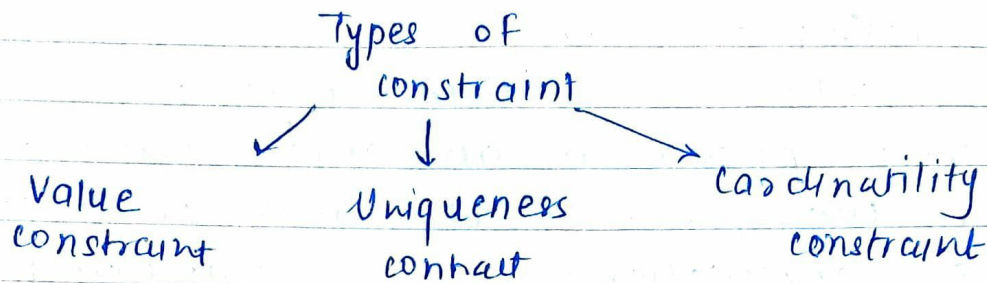 Types of
constraint
Value
constraint
Uniqueness
conhaut
Cardinality
constraint